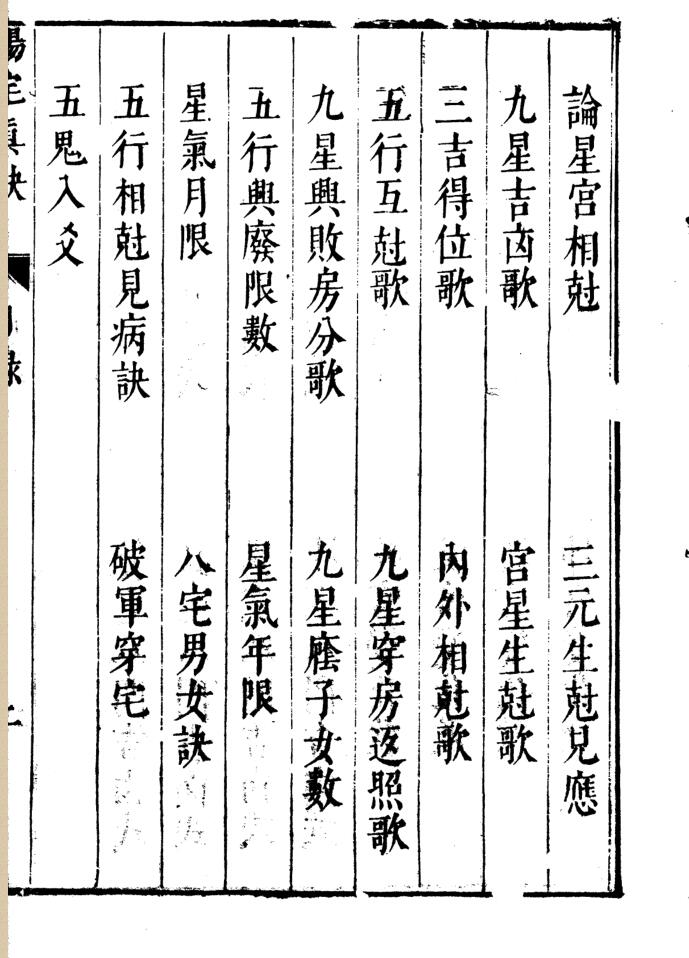 論星宮相尅　三元生尅見應
九星吉凶歌　宮星生尅歌
三吉得位歌　內外相尅歌
五行互尅歌　九星穿房返照歌
九星興敗房分歌　九星䕃子女數
五行興廢限數　星氣年限
星氣月限　八宅男女訣
五行相尅見病訣　破軍穿宅
五鬼入爻
陽宅真訣
目錄